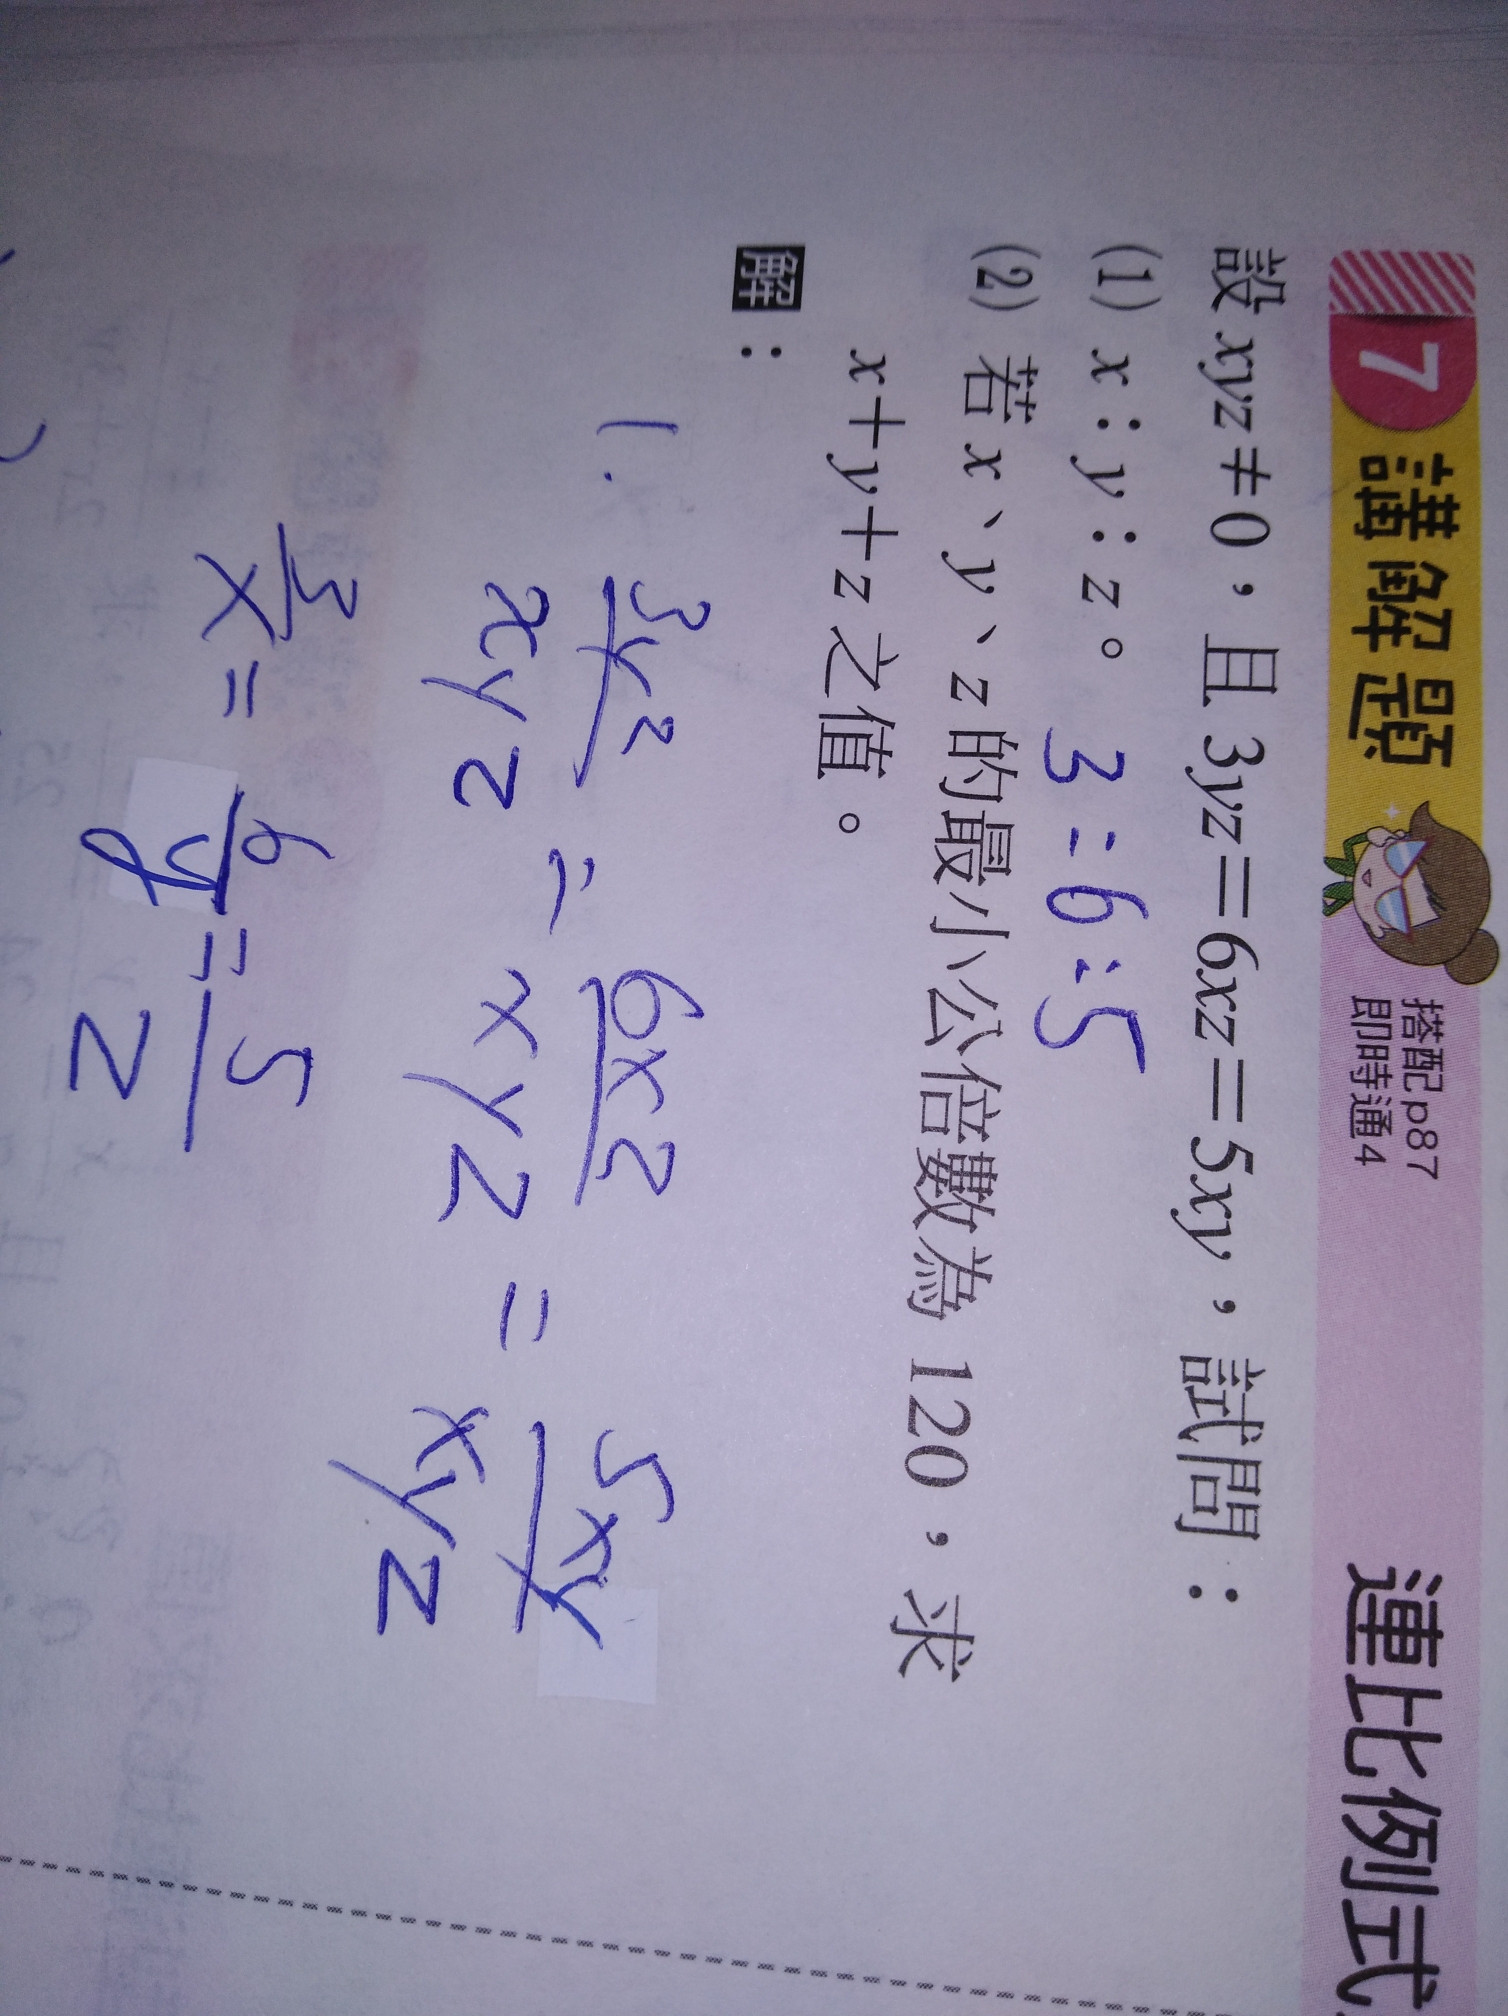 7 講解題 搭配p87 即時通4 連比例式
設 xyz≠0,且 3yz=6xz=5xy,試問:
(1) x:y:z。 3:6:5
(2) 若 x、y、z 的最小公倍數為 120,求
x+y+z 之值。
解:
1. 3yz/xyz = 6xz/xyz = 5xy/xyz
3/x = 6/y = 5/z